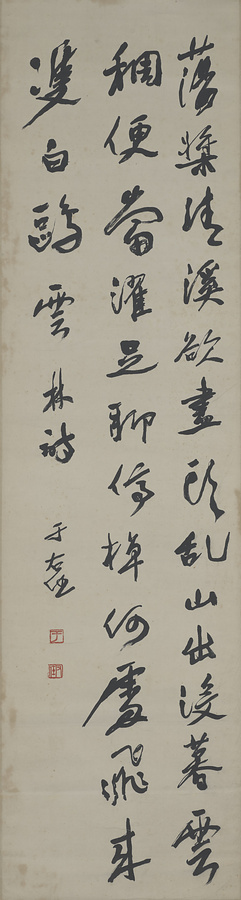 蕩槳清溪欲盡頭乱山出没暮雲
稠便當濯足聊停棹何處飛來
雙白鷗 雲林詩 于右任